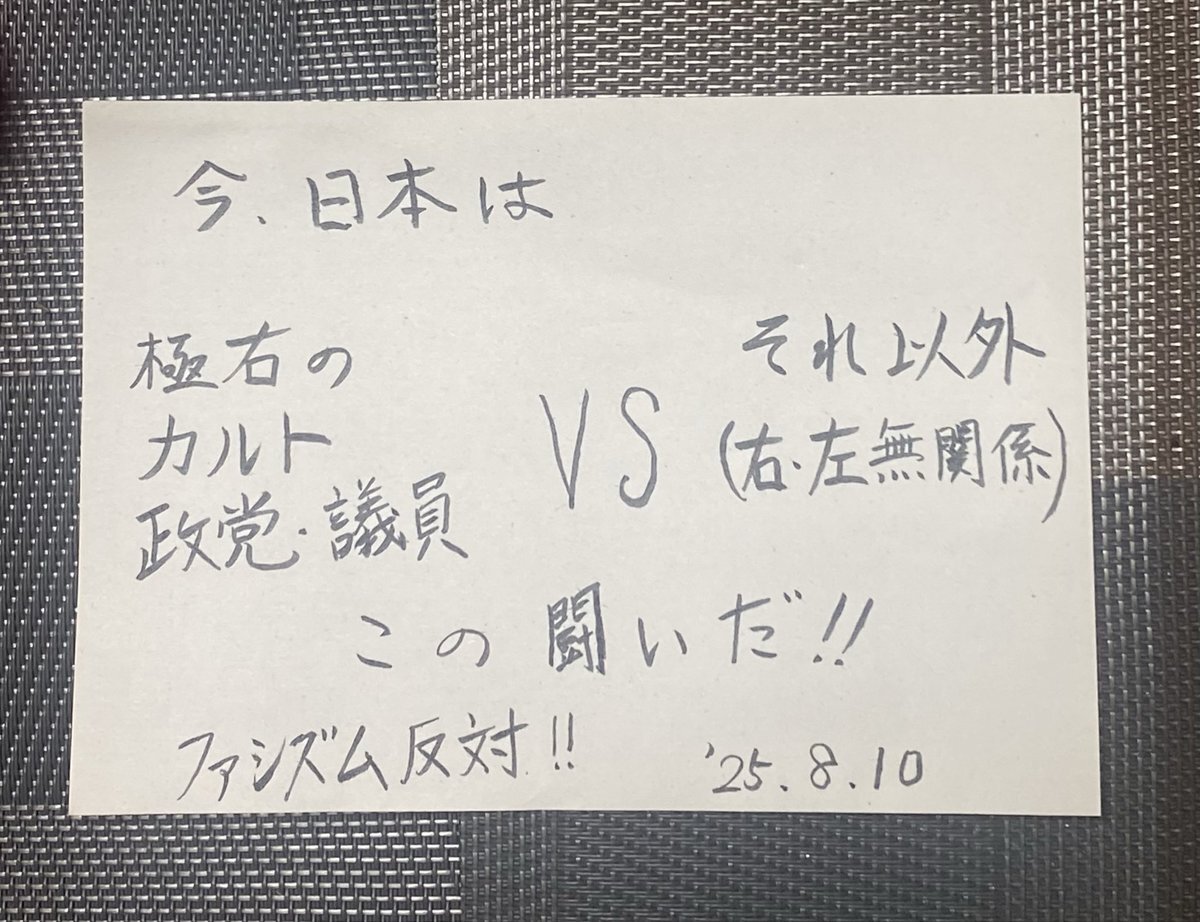 今、日本は
極右の
カルト
政党・議員
VS
それ以外
(右・左無関係)
この闘いだ!!
ファシズム反対!!
'25.8.10